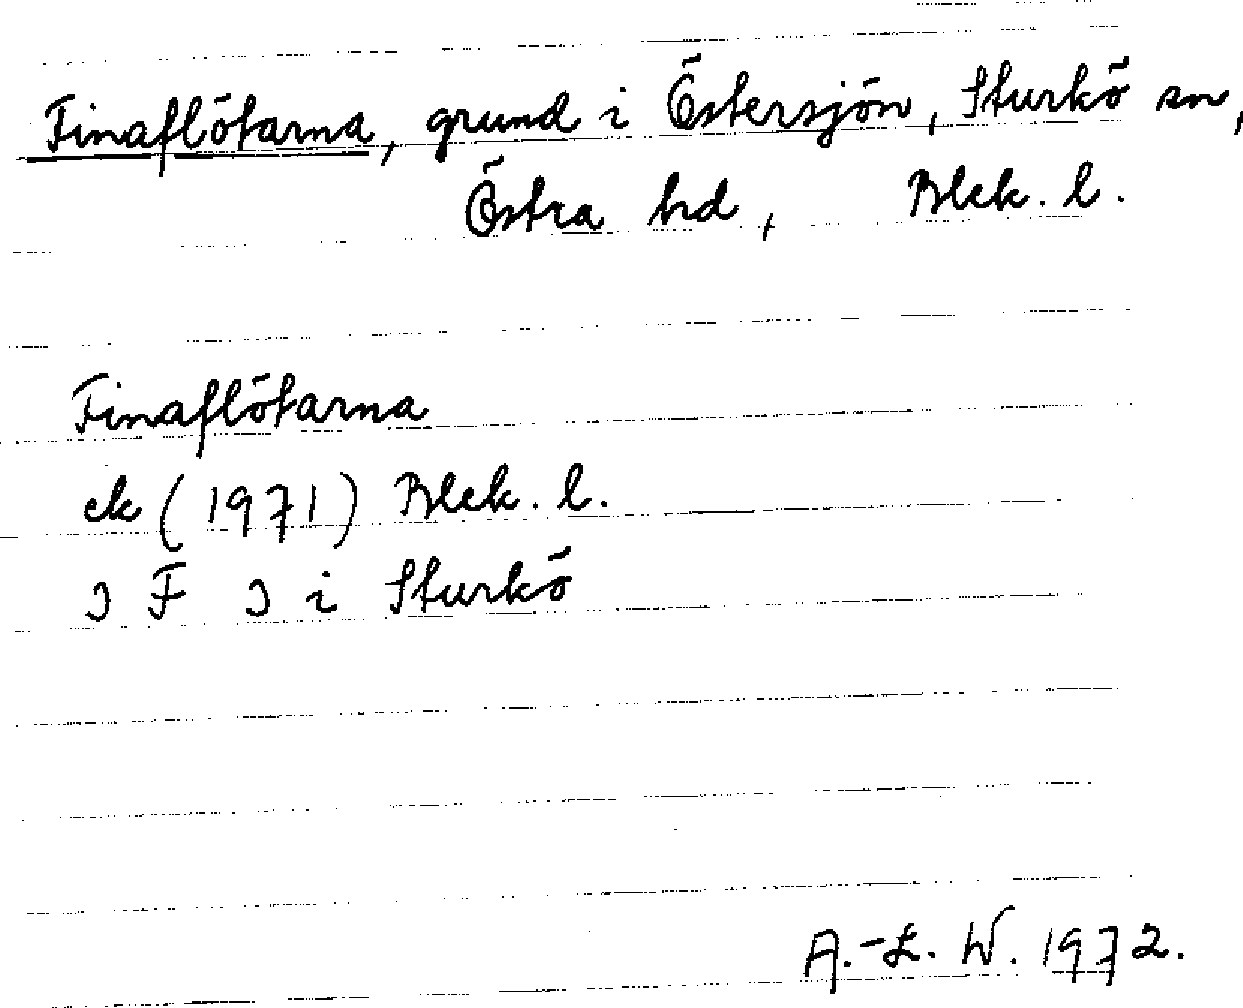 Finaflötarna, grund i Östersjön, Sturkö sn,
Östra hd, Blek. l.
Finaflötarna
ek (1971) Blek. l.
J F J i Sturkö
A.-L. W. 1972.